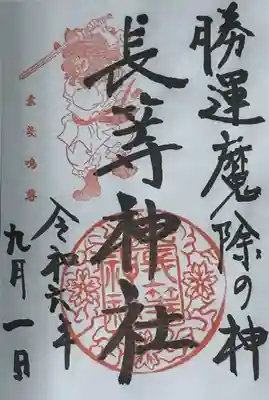 勝運魔除の神
長等神社
令和六年
九月一日
素戔嗚尊